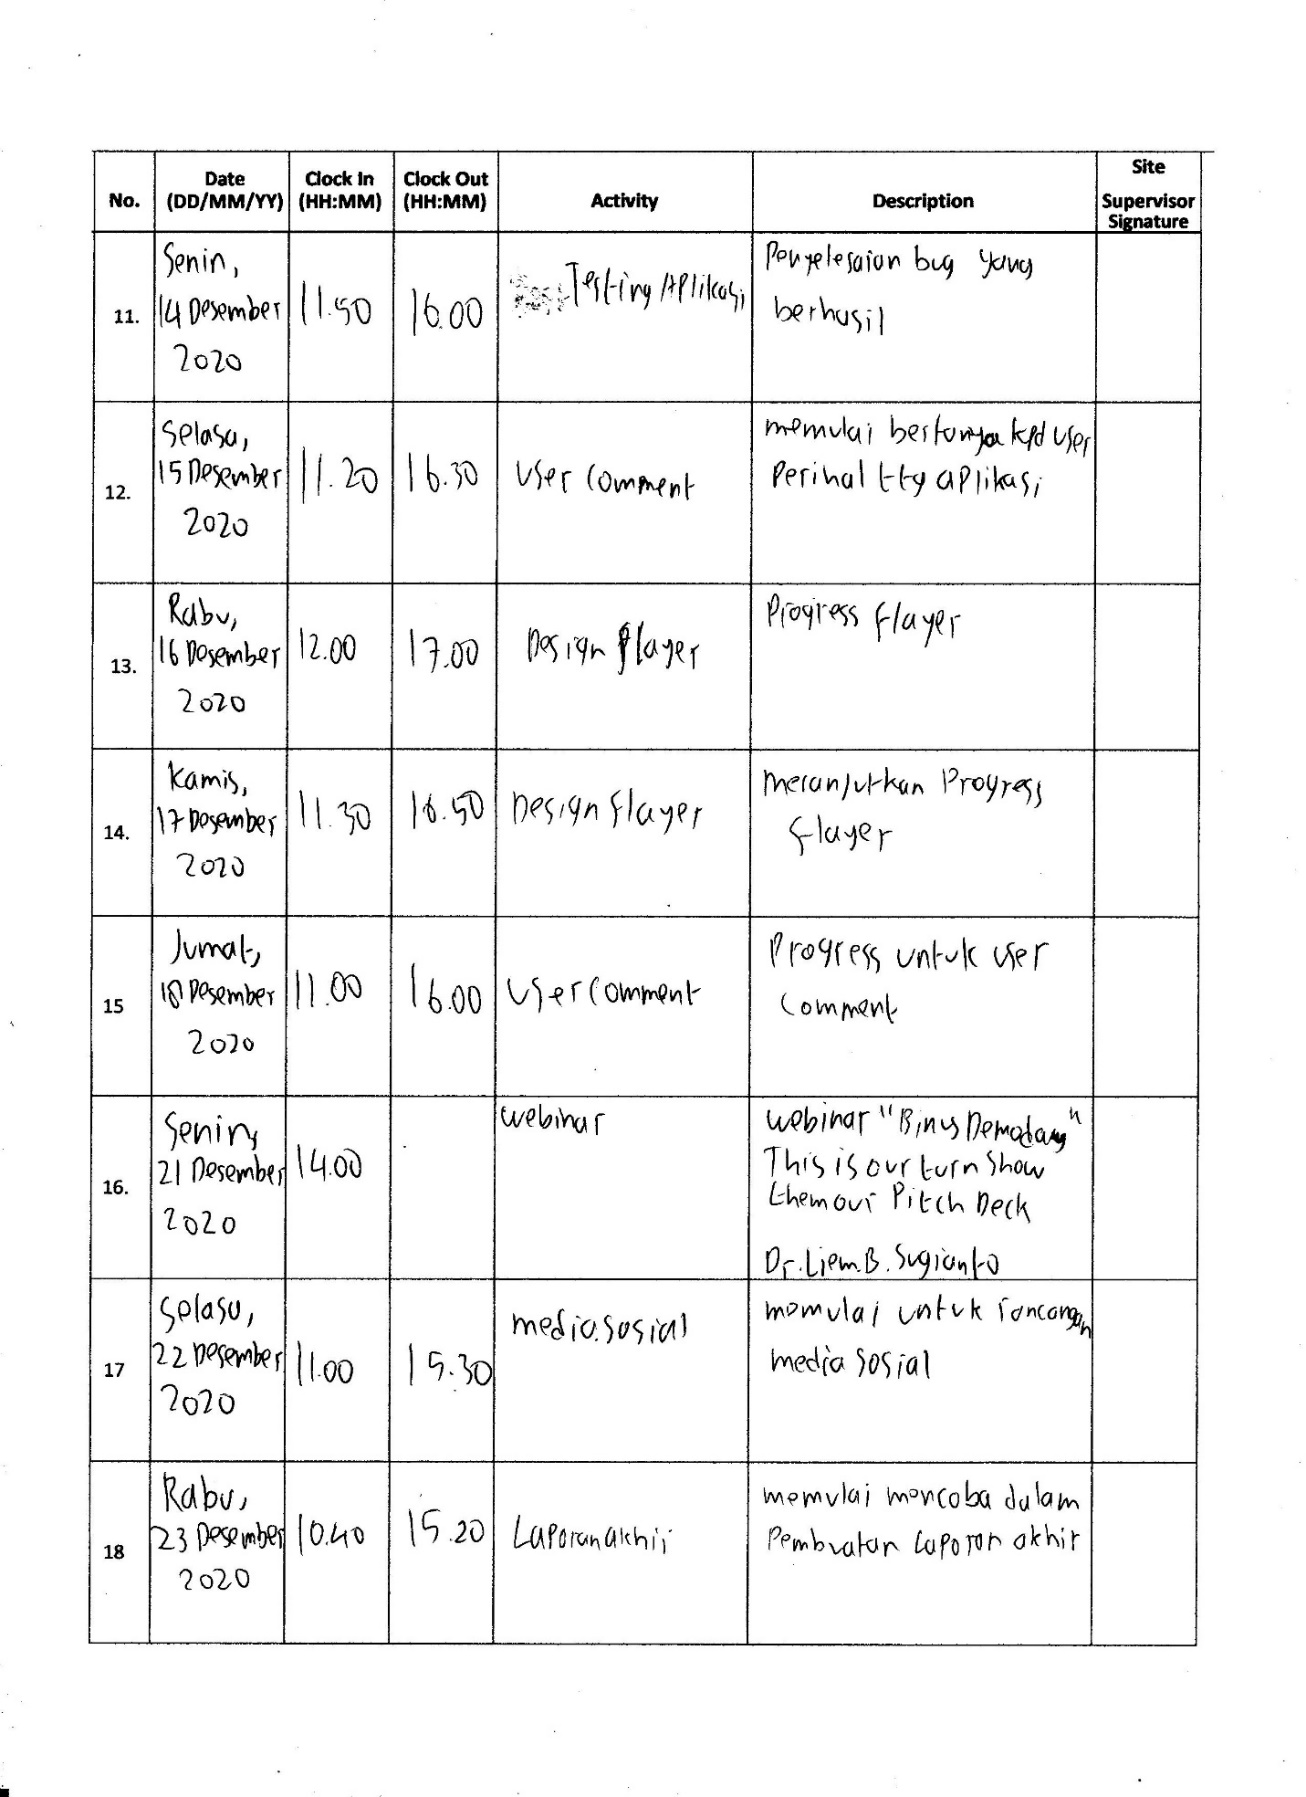 No. Date (DD/MM/YY) Clock In (HH:MM) Clock Out (HH:MM) Activity Description Site Supervisor Signature
11.
Senin,
14 Desember
2020
11.50
16.00
Testing Aplikasi
Penyelesaian bug yang
berhasil
12.
Selasa,
15 Desember
2020
11.20
16.30
User Comment
memulai bertanya kpd user
Perihal ttg aplikasi
13.
Rabu,
16 Desember
2020
12.00
17.00
Design flayer
Progress flayer
14.
Kamis,
17 Desember
2020
11.30
16.50
Design flayer
melanjutkan Progress
flayer
15
Jumat,
18 Desember
2020
11.00
16.00
User Comment
Progress untuk user
Comment
16.
Senin,
21 Desember
2020
14.00
webinar
webinar "Binus
This is our turn Show
them our Pitch Deck
Dr. Liem.B. Sugianto
17
Selasa,
22 Desember
2020
11.00
15.30
media sosial
memulai untuk rancangan
media sosial
18
Rabu,
23 Desember
2020
10.40
15.20
Laporan akhir
memulai mencoba dalam
Pembuatan Laporan akhir